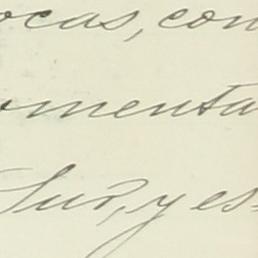 ocas, con
omenta
Sur, y es-